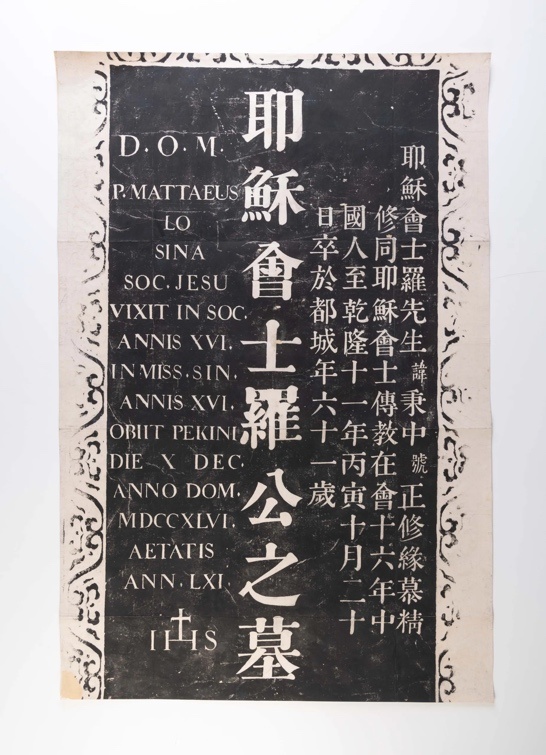 耶穌會士羅先生諱秉中號正修緣慕精
修同耶穌會士傳教在會十六年中
國人至乾隆十一年丙寅十月二十
日卒於都城年六十一歲
耶穌會士羅公之墓
D. O. M.
P. MATTAEUS
LO
SINA
SOC. JESU
VIXIT IN SOC.
ANNIS XVI.
IN MISS. SIN.
ANNIS XVI.
OBIIT PEKINI
DIE X DEC.
ANNO DOM.
MDCCXLVI.
AETATIS
ANN. LXI.
IHS